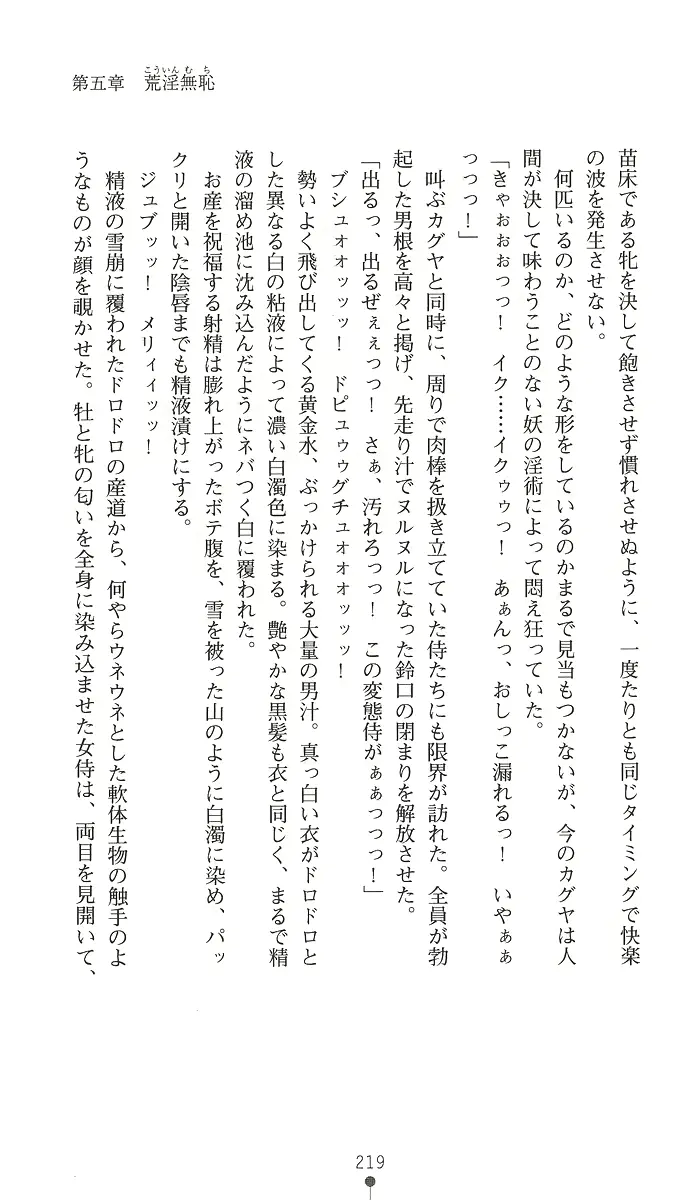 第五章　荒淫無恥
こういんむち
苗床である牝を決して飽きさせず慣れさせぬように、一度たりとも同じタイミングで快楽
の波を発生させない。
何匹いるのか、どのような形をしているのかまるで見当もつかないが、今のカグヤは人
間が決して味わうことのない妖の淫術によって悶え狂っていた。
「きゃぉぉぉっっ！　イク……イクゥゥっ！　あぁんっ、おしっこ漏れるっ！　いやぁぁ
っっっ！」
叫ぶカグヤと同時に、周りで肉棒を扱き立てていた侍たちにも限界が訪れた。全員が勃
起した男根を高々と掲げ、先走り汁でヌルヌルになった鈴口の閉まりを解放させた。
「出るっ、出るぜぇぇっっ！　さぁ、汚れろっっ！　この変態侍がぁぁっっっ！」
ブシュォオッッッ！　ドピュゥゥグチュォォォッッッ！
勢いよく飛び出してくる黄金水、ぶっかけられる大量の男汁。真っ白い衣がドロドロと
した異なる白の粘液によって濃い白濁色に染まる。艶やかな黒髪も衣と同じく、まるで精
液の溜め池に沈み込んだようにネバつく白に覆われた。
お産を祝福する射精は膨れ上がったボテ腹を、雪を被った山のように白濁に染め、パッ
クリと開いた陰唇までも精液漬けにする。
ジュブッッ！　メリィィッッ！
精液の雪崩に覆われたドロドロの産道から、何やらウネウネとした軟体生物の触手のよ
うなものが顔を覗かせた。牡と牝の匂いを全身に染み込ませた女侍は、両目を見開いて、
219